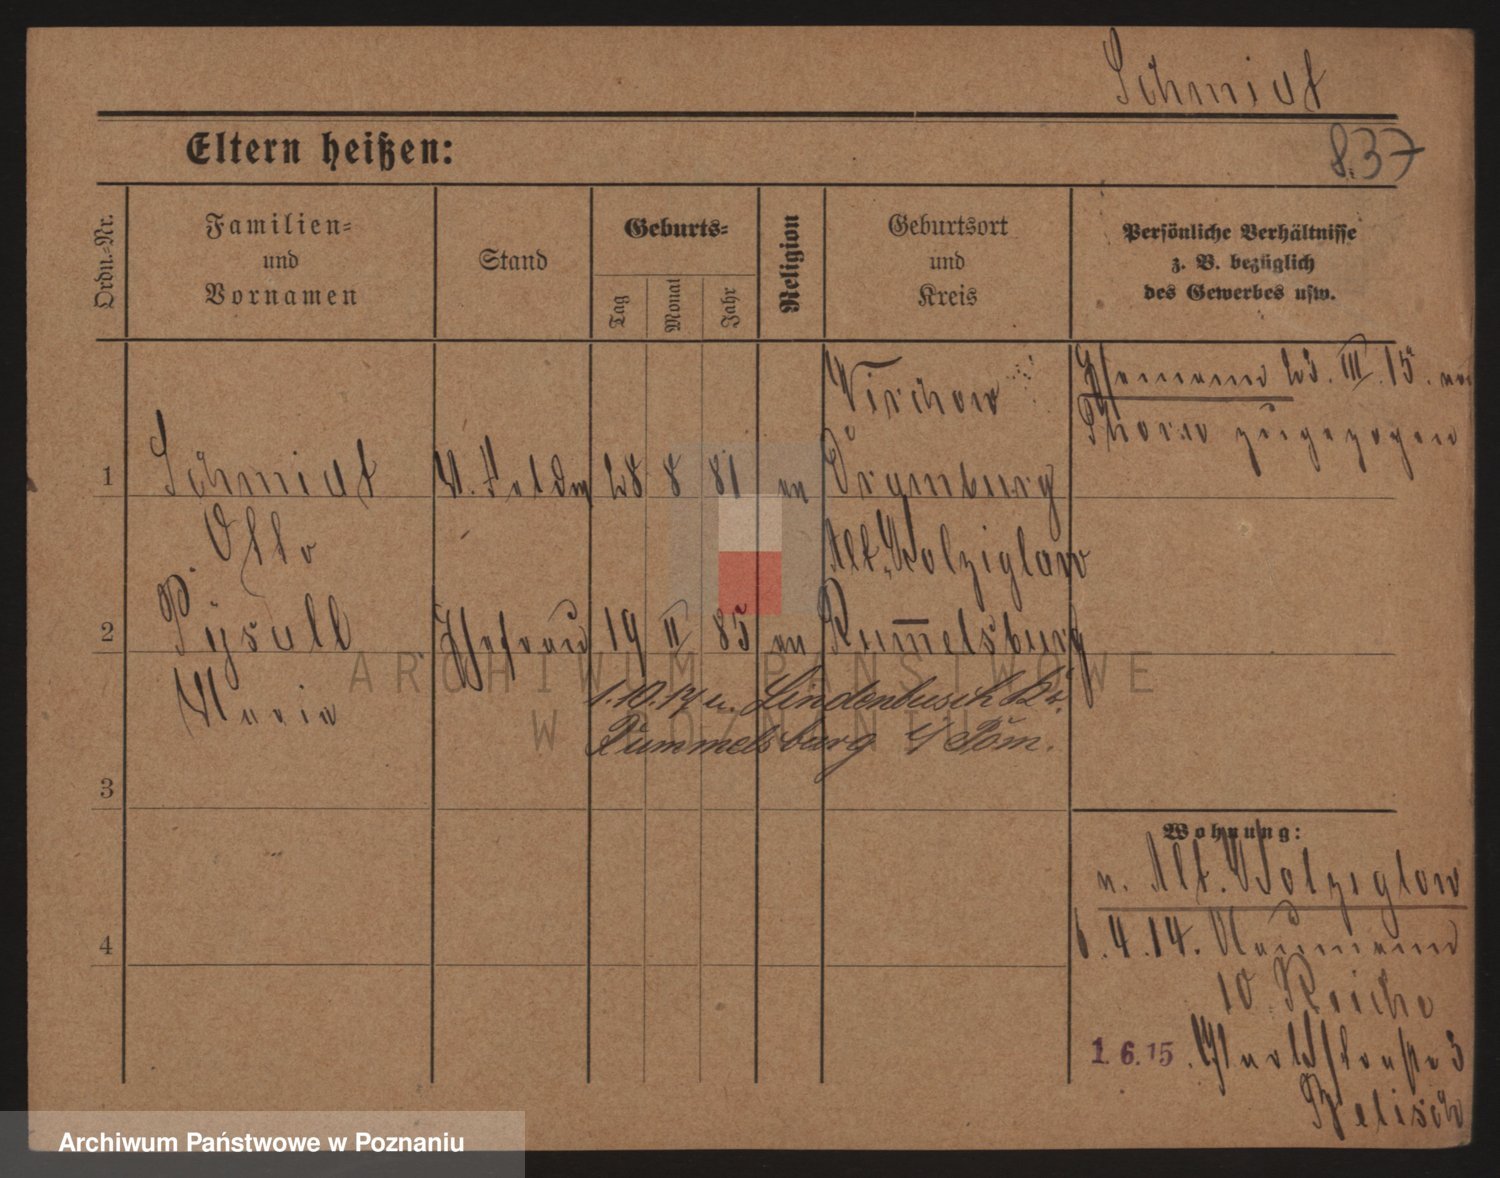 Schmidt
837
Eltern heißen:
Ordn.=Nr.
Familien=
und
Vornamen
Stand
Geburts=
Tag
Monat
Jahr
Religion
Geburtsort
und
Kreis
Persönliche Verhältnisse
z. B. bezüglich
des Gewerbes usw.
1
Schmidt
Otto
28 8 81 ev
Virchow
Dramburg
Ehemann 23. III. 15. von
Thorn zugezogen
2
Pysall
Maria
Ehefrau 19 II 85 ev
Alt. Kolziglow
Rummelsburg
1.10.17 n. Lindenbusch Kr.
Rummelsburg i/ Pom.
3
4
Wohnung:
n. Alt. Kolziglow
6.4.14. Naumann
10 Reiche
1. 6. 15
3
ARCHIWUM PAŃSTWOWE
W POZNANIU
Archiwum Państwowe w Poznaniu